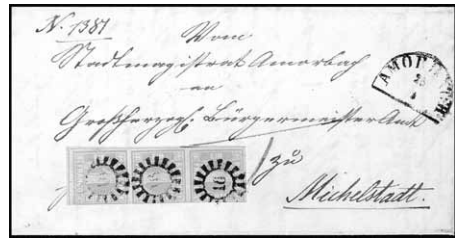 N. 1387
Vom
Stadtmagistrat Amorbach
an
Großherzogl. Bürgermeister Amt
zu
Michelstadt.